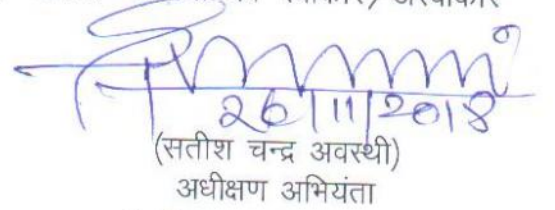 अस्वीकार
26/11/2018
(सतीश चन्द्र अवस्थी)
अधीक्षण अभियंता